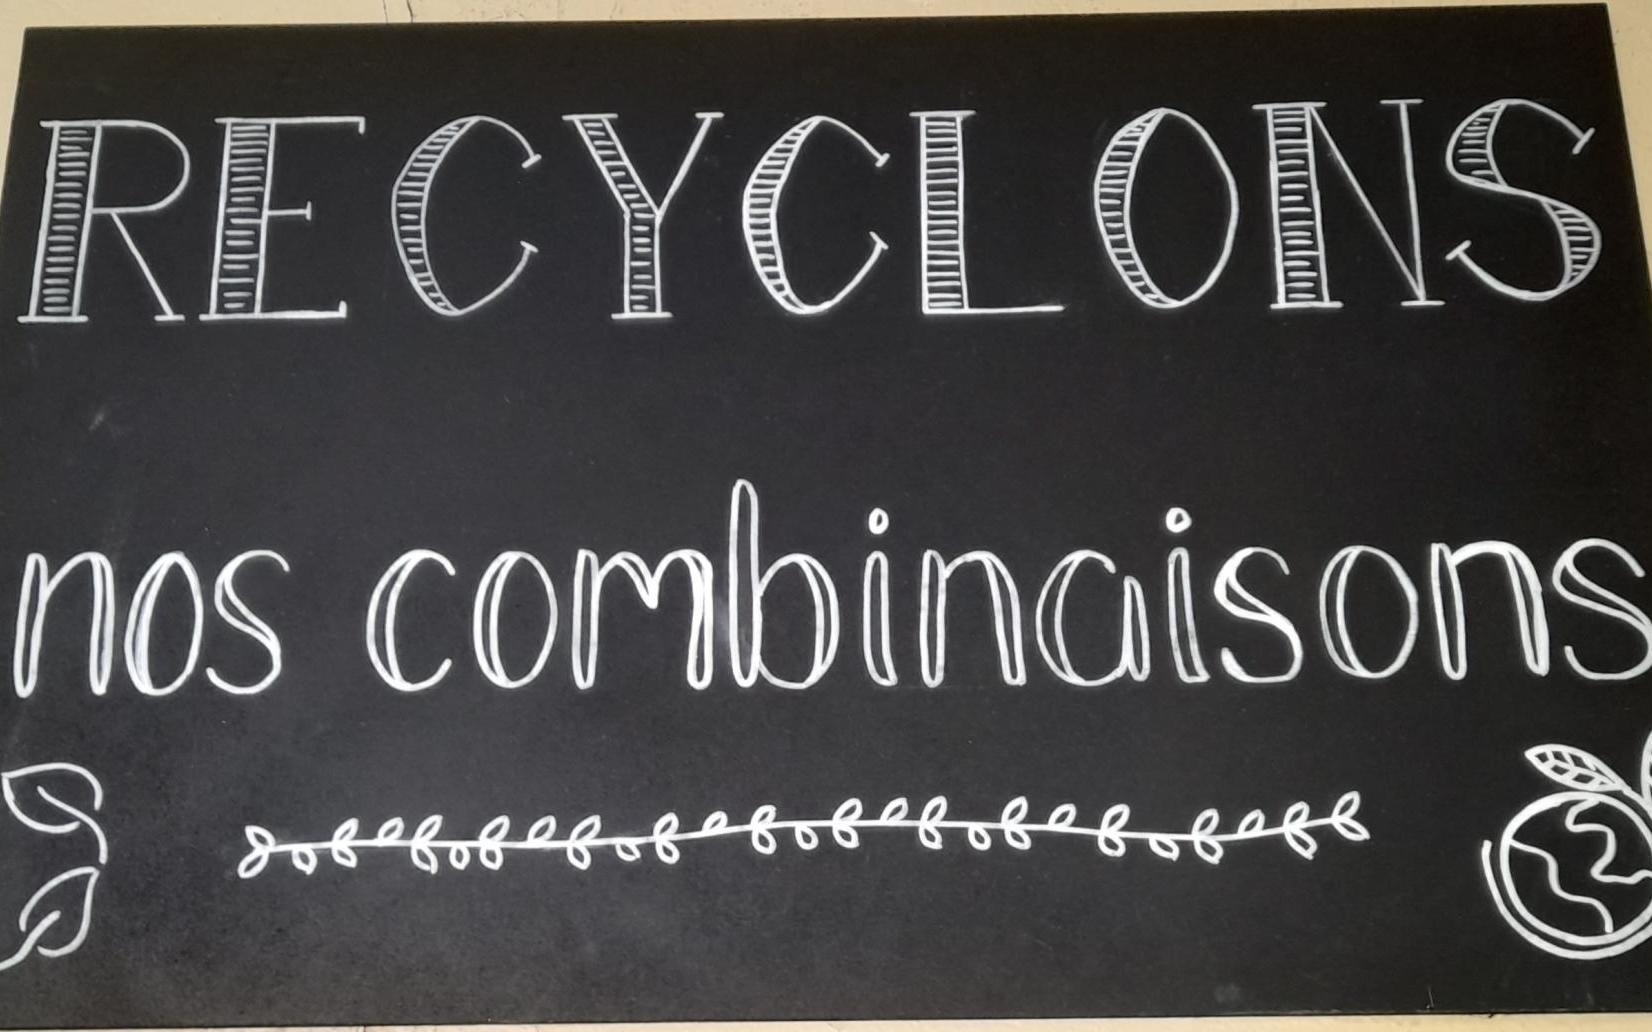 RECYCLONS
nos combinaisons